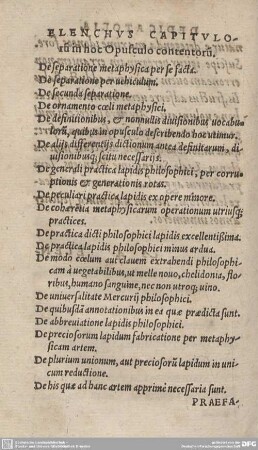 ELENCHVS CAPITVLO-
rũ in hoc Opusculo contentorũ.
De separatione metaphysica per se facta.
De separatione per uehiculum.
De secunda separatione.
De ornamento cœli metaphysici.
De definitionibus, & nonnullis diuisionibus uocabu
lorũ, quibus in opusculo describendo hoc utimur.
De alijs differentijs dictionum antea definitarum, di-
uisionibusq; scitu necessarijs.
De generali practica lapidis philosophici, per corru-
ptionis & generationis rotas.
De peculiari practica lapidis ex opere minore.
De cohærētia metaphysicarum operationum utriusq;
practices.
De practica dicti philosophici lapidis excellentißima.
De practica lapidis philosophici minus ardua.
De modo cœlum aut clauem extrahendi philosophi-
cam à uegetabilibus, ut melle nouo, chelidonia, flo-
ribus, humano sanguine, nec non utroq; uino.
De uniuersalitate Mercurij philosophici.
De quibusdã annotationibus in ea quæ prædicta sunt.
De abbreuiatione lapidis philosophici.
De preciosorum lapidum fabricatione per metaphy-
sicam artem.
De plurium unionum, aut preciosorũ lapidum in uni-
cum reductione.
De his quæ ad hanc artem apprimè necessaria sunt.
PRAEFA-